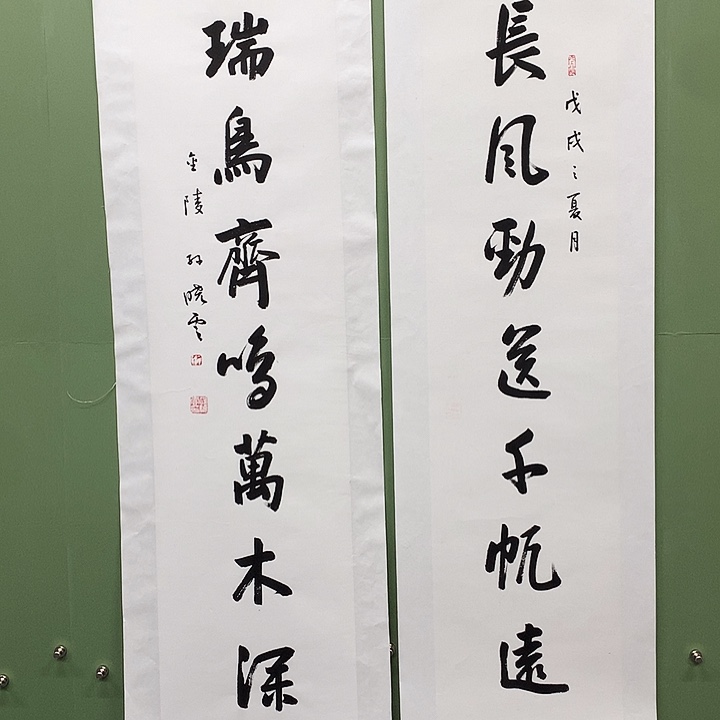 戊戌之夏月
長風勁送千帆遠
瑞鳥齊鳴萬木深
金陵 孫曉雲